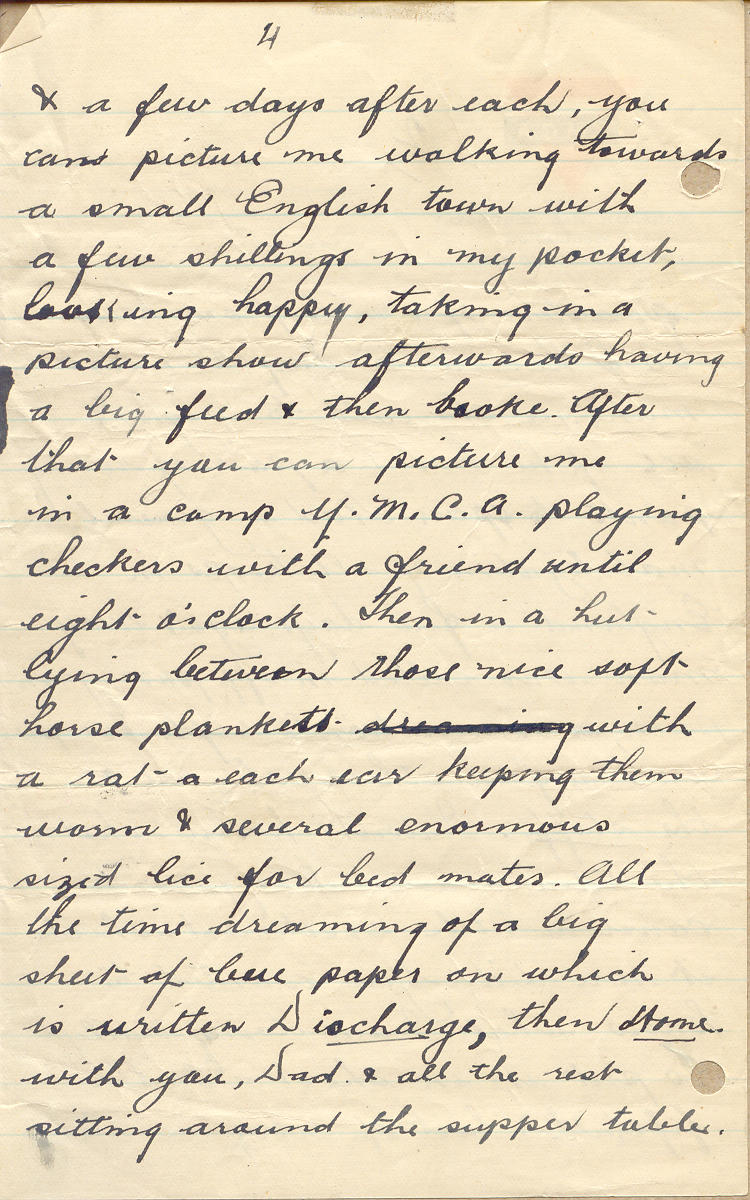 4
& a few days after each, you
can picture me walking towards
a small English town with
a few shillings in my pocket,
looking happy, taking in a
picture show afterwards having
a big feed & then broke. After
that you can picture me
in a camp Y.M.C.A. playing
checkers with a friend until
eight o'clock. Then in a hut
lying between those nice soft
horse plankets dreaming with
a rat a each ear keeping them
warm & several enormous
sized lice for bed mates. All
the time dreaming of a big
sheet of blue paper on which
is written Discharge, then Home.
with you, Dad. & all the rest
sitting around the supper table.